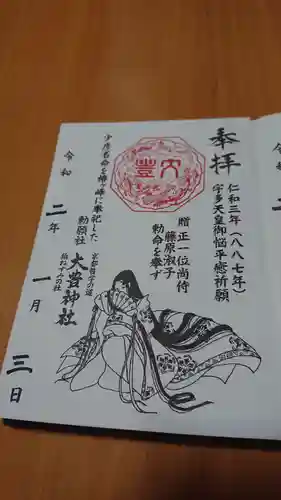 奉拝
仁和三年(八八七年)
宇多天皇御悩平癒祈願
贈正一位尚侍
藤原淑子
勅命を奉ず
大豊
少彦名命を椿ヶ峰に奉祀した
勅願社
京都哲学の道
大豊神社
狛ねずみの社
令和二年一月三日
令
二